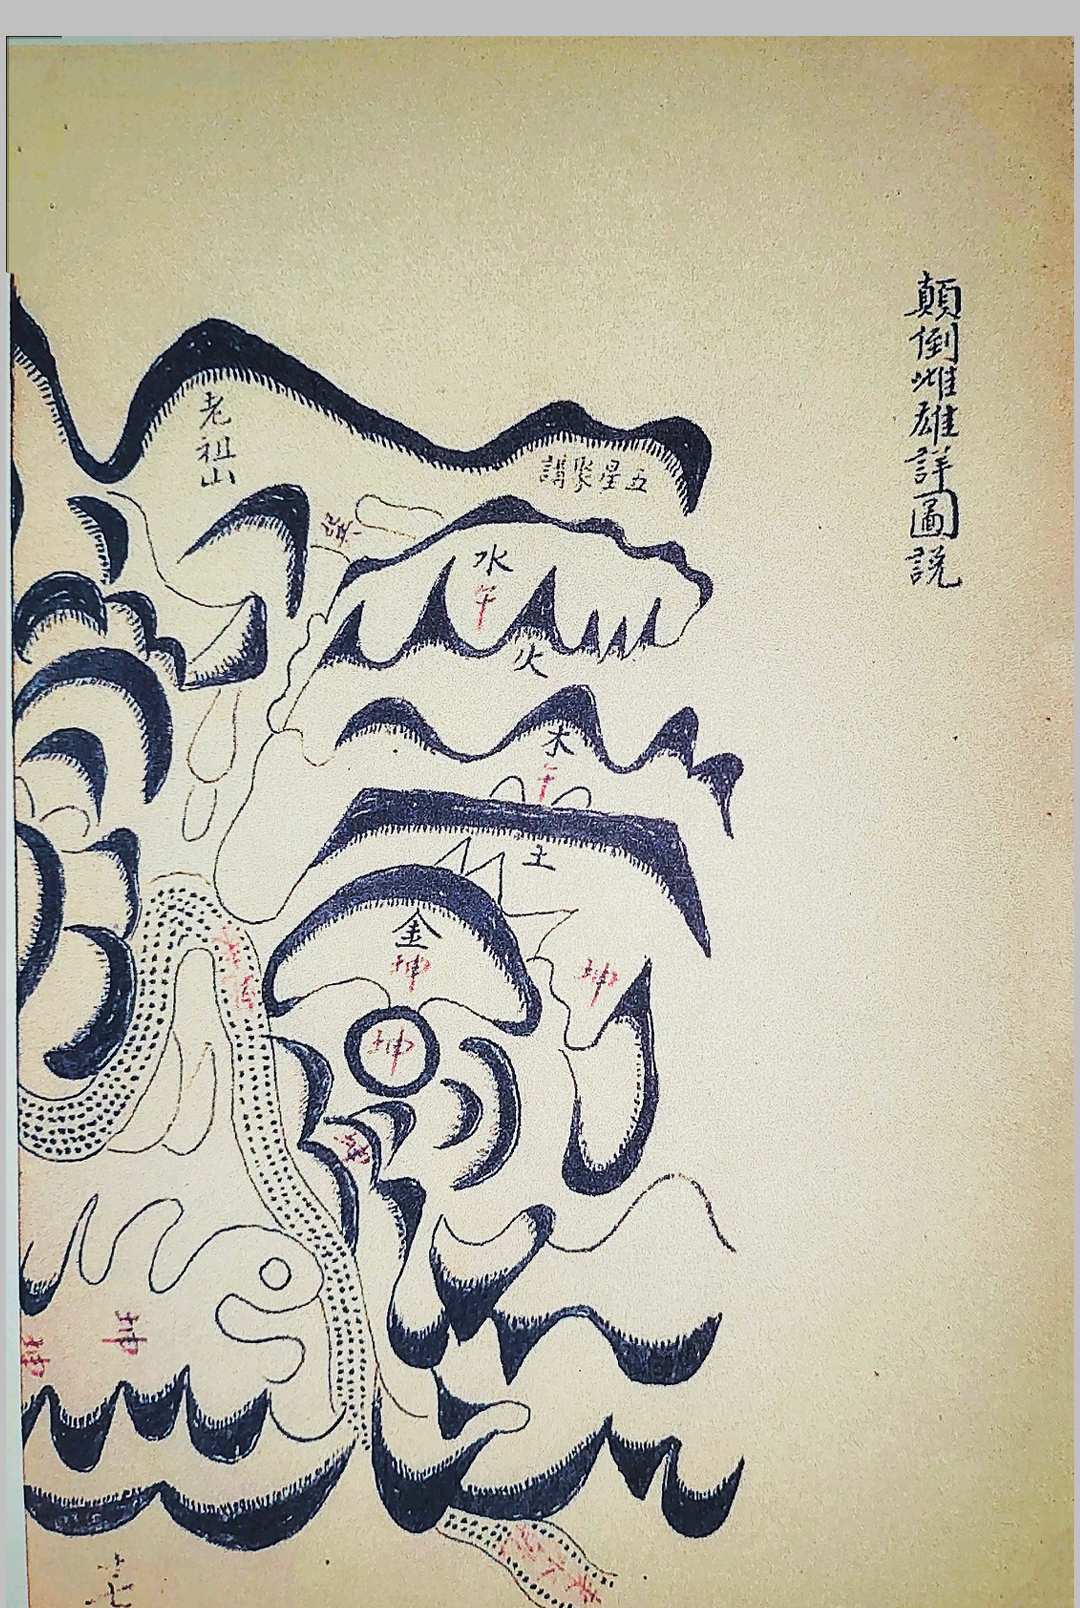 顛倒雌雄詳圖説
五星聚講
老祖山
水
午
火
木
午
土
金
坤
坤
坤
坤
坤